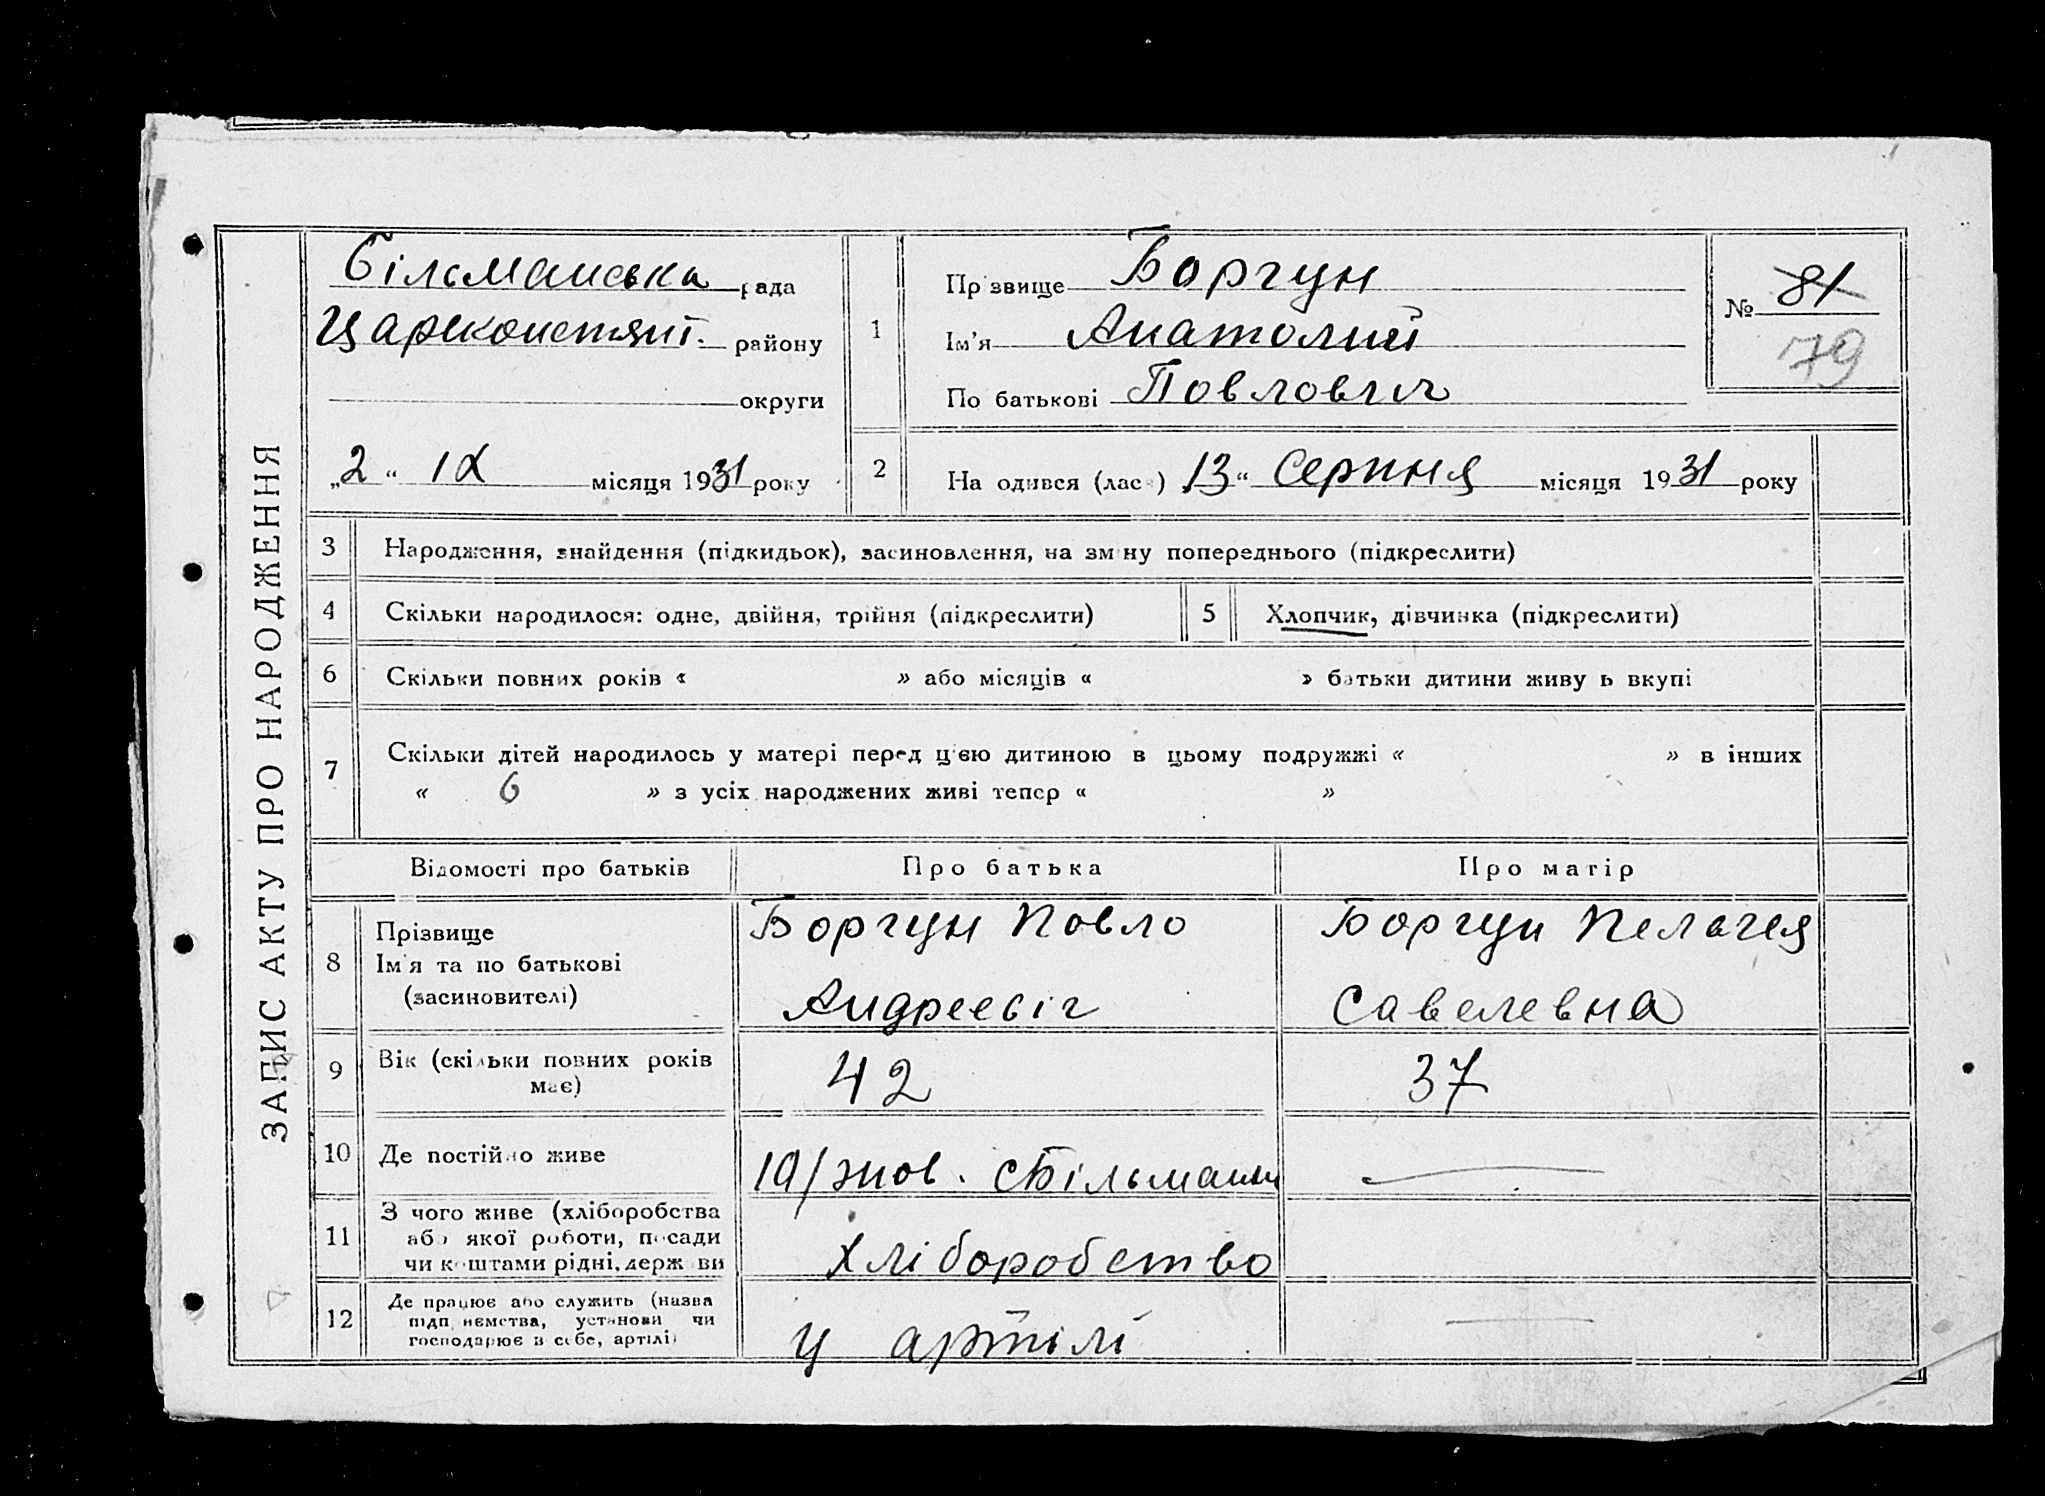 ЗАПИС АКТУ ПРО НАРОДЖЕННЯ
Більманська рада
Царекостянт. району
округи
„2“ IX місяця 1931 року
1
Прізвище Боргун
Ім'я Анатолий
По батькові Повлович
№ 81
79
2
Народився (лась) 13“ Серпня місяця 1931 року
3 Народження, знайдення (підкидьок), засиновлення, на зміну попереднього (підкреслити)
4 Скільки народилося: одне, двійня, трійня (підкреслити)
5 Хлопчик, дівчинка (підкреслити)
6 Скільки повних років « » або місяців « » батьки дитини живуть вкупі
7 Скільки дітей народилось у матері перед цією дитиною в цьому подружжі « » в інших
« 6 » з усіх народжених живі тепер « »
Відомості про батьків Про батька Про матір
8 Прізвище
Ім'я та по батькові
(засиновителі)
Боргун Повло
Андреевіч
Боргун Пелагея
Савелевна
9 Вік (скільки повних років
має)
42
37
10 Де постійно живе
Більманка
11 З чого живе (хліборобства
або якої роботи, посади
чи коштами рідні, держави
Хліборобство
12 Де працює або служить (назва
підприємства, установи чи
господарює в себе, артілі)
у артілі